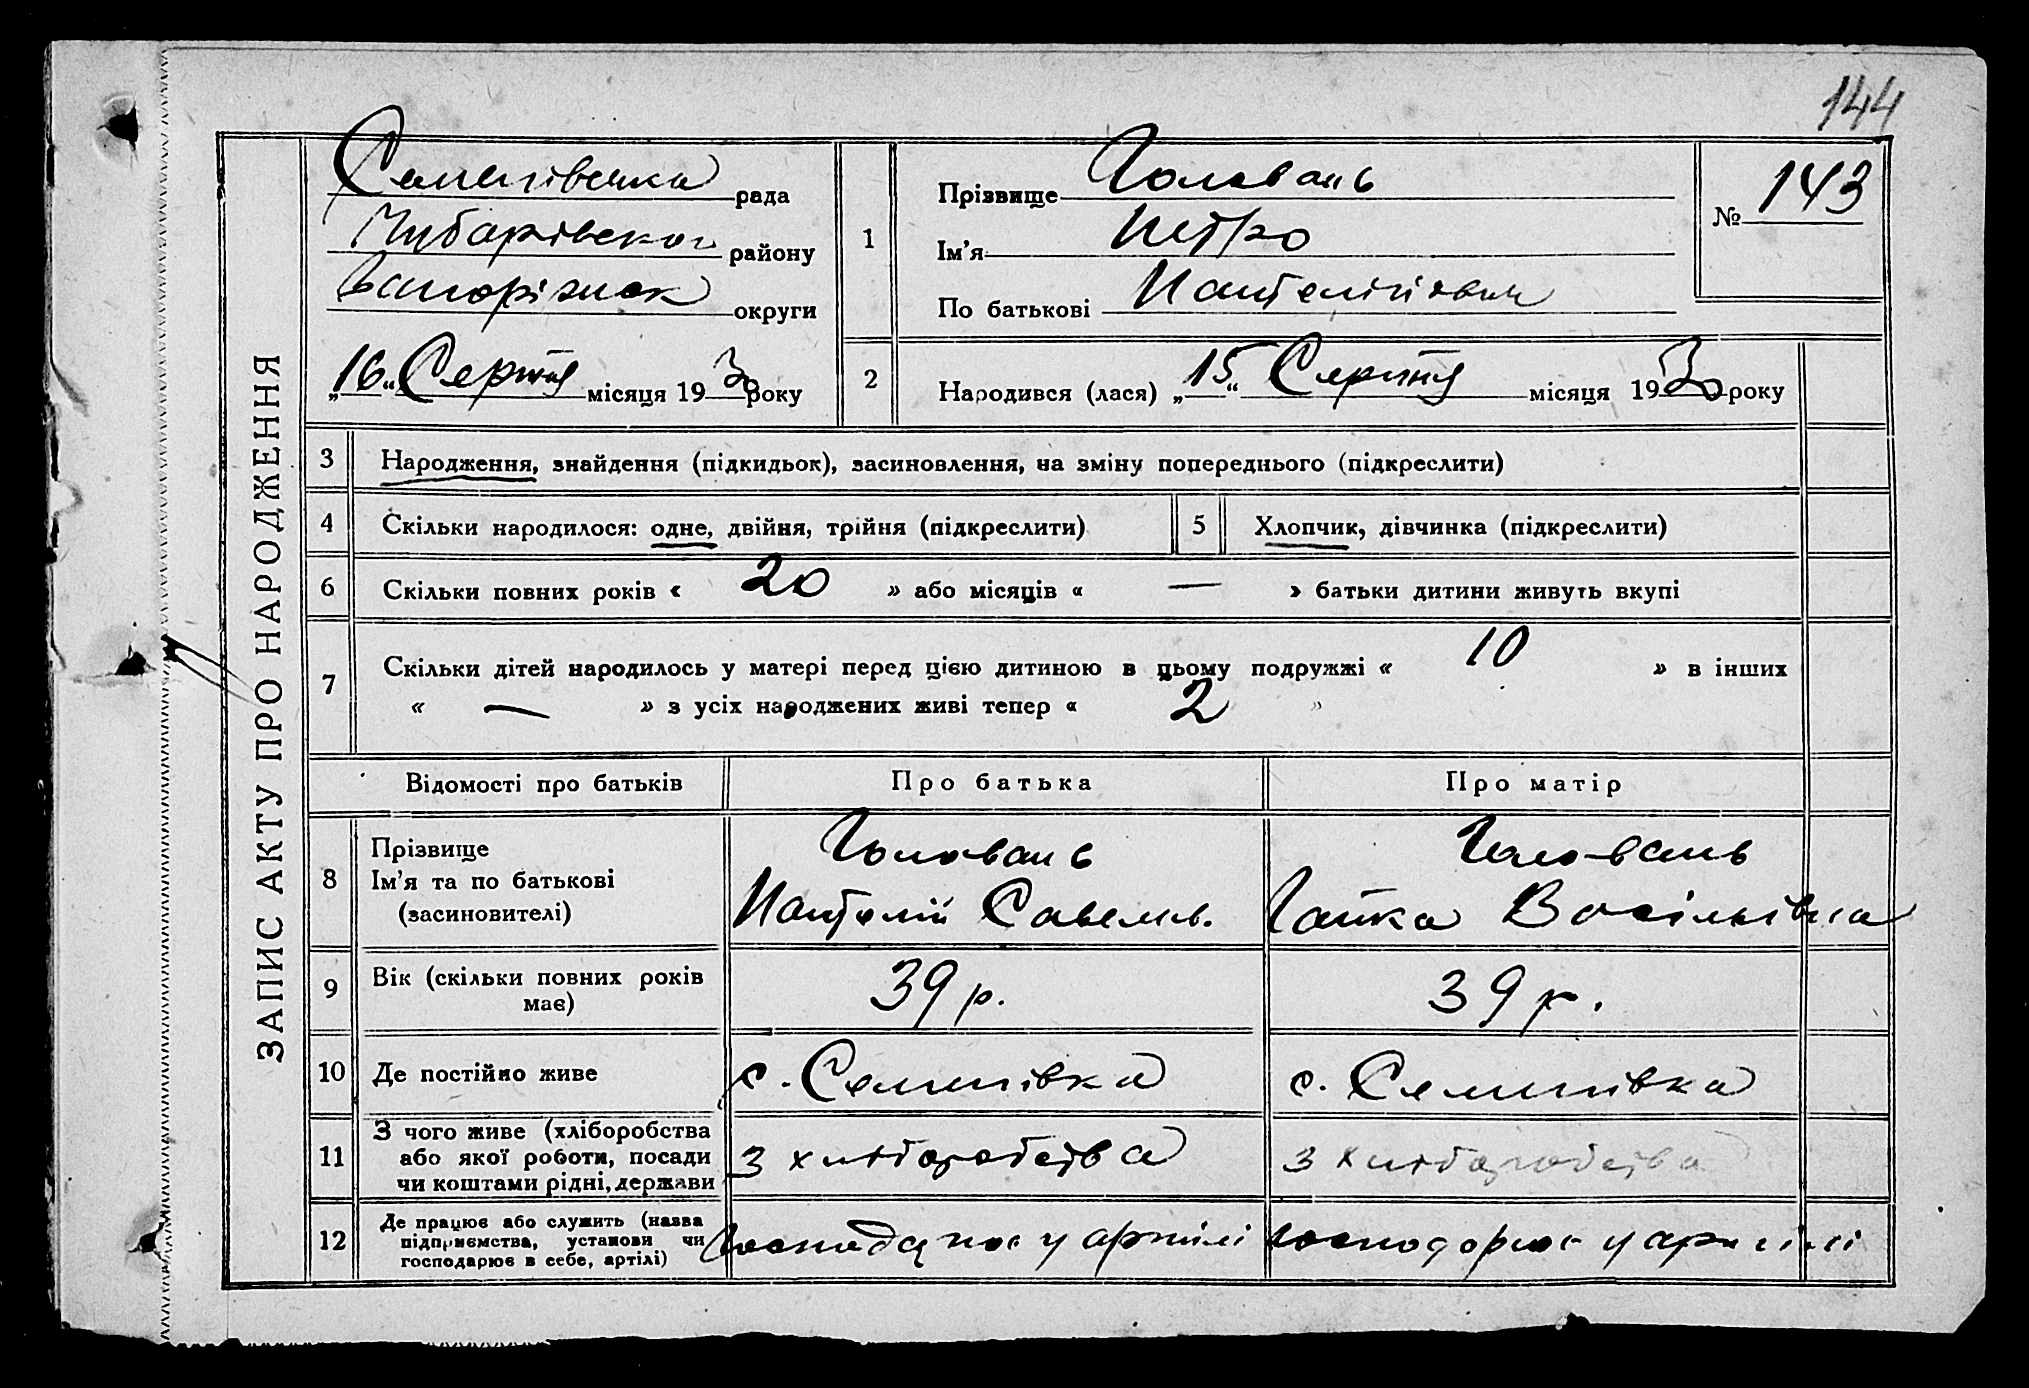 144
ЗАПИС АКТУ ПРО НАРОДЖЕННЯ
Семенівська рада
Чубарівськог району
Запоріжок округи
„16“ Серпня місяця 1930 року
1
Прізвище Головань
Ім'я Петро
По батькові Пантелійович
№ 143
2
Народився (лася) „15“ Серпня місяця 1930 року
3 Народження, знайдення (підкидьок), засиновлення, на зміну попереднього (підкреслити)
4 Скільки народилося: одне, двійня, трійня (підкреслити)
5 Хлопчик, дівчинка (підкреслити)
6 Скільки повних років « 20 » або місяців « — » батьки дитини живуть вкупі
7 Скільки дітей народилось у матері перед цією дитиною в цьому подружжі « 10 » в інших
« — » з усіх народжених живі тепер « 2 »
Відомості про батьків Про батька Про матір
8 Прізвище
Ім'я та по батькові
(засиновителі)
Головань
Пантелій Савельь.
Головань
Гапка Васільівна
9 Вік (скільки повних років
має)
39 р.
39 р.
10 Де постійно живе
с. Семенівка
с. Семенівка
11 З чого живе (хліборобства
або якої роботи, посади
чи коштами рідні, держави
З хліборобства
З хліборобства
12 Де працює або служить (назва
підприємства, установи чи
господарює в себе, артілі)
Господарює у артілі
господорює у артілі